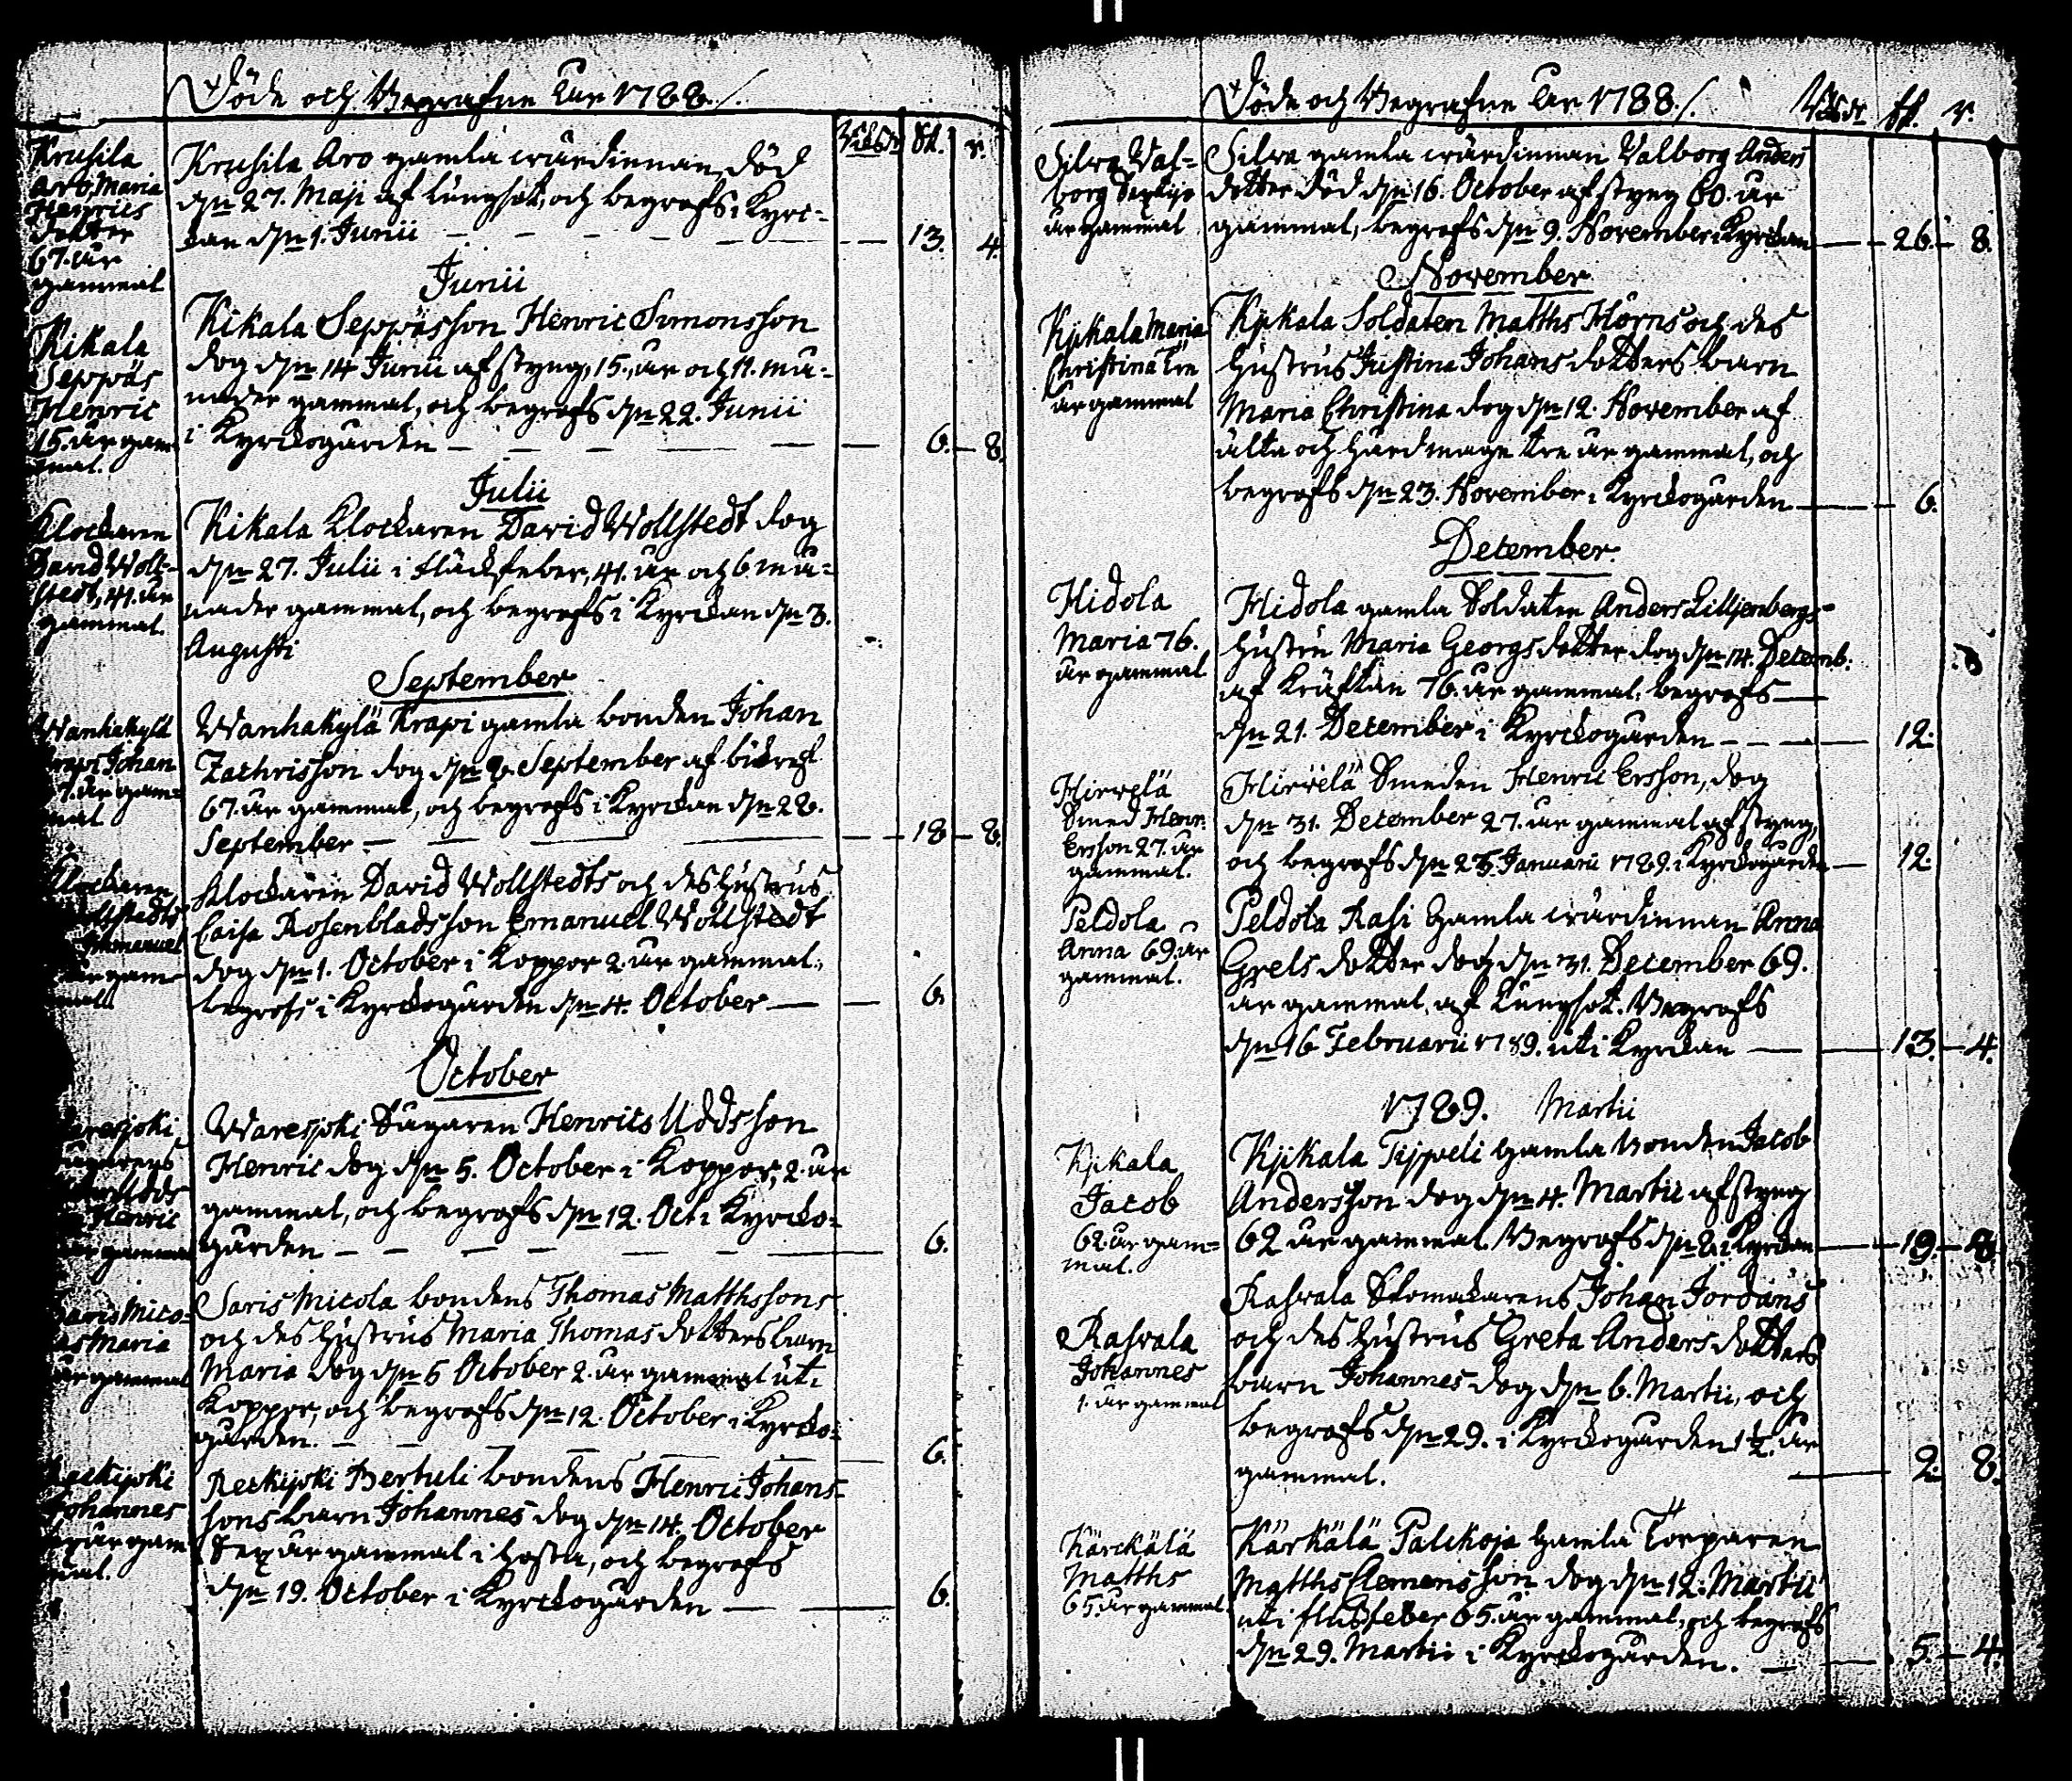 Döde och Begrafne Åar 1788./.
Riksdr sk. r.
Krusila
Aro, Maria
Henrics
dotter
67. år
gammal
Krusila Aro gamla wärdinnan, död
d​en 27. Maji af lungsot, och begrofs i Kyrc-
kan den 1. Junii — — — — 13. 4.
Junii
Kikala
Seppäs
Henric
15. år gam-
mal.
Kikala Seppäs son Henric Simonsson
dog den 14 Junii af styng, 15. år och 11. må-
nader gammal, och begrofs den 22. Junii
i Kyrckogården — — — — 6. — 8.
Julii
Klockaren
David Woll-
stedt, 41. år
gammal.
Kikala Klockaren David Wollstedt dog
den 27. Julii i fläckfeber, 41. år och 6. må-
nader gammal, och begrofs i Kyrckan den 3.
Augusti
September
Wanhakylä
Krapi Johan
7. år gam-
mal
Wanhakylä Krapi gamla bonden Johan
Zachrisson dog den 8. September af
67. år gammal, och begrofs i Kyrckan den 28.
September — — — — 18 — 8.
Klockaren
Wollstedts
Emanuel
år gam-
mal
Klockaren David Wollstedts och des hustrus
Caisa Rosenblads son Emanuel Wollstedt
dog den 1. October i Koppor 2. år gammal,
begrofs i Kyrckogården den 4. October — — 6.
October
Waresjoki
Henric
år gammal
Waresjoki Sågaren Henrics Udds son
Henric dog den 5. October i Koppor, 2. år
gammal, och begrofs den 12. Oct. i Kyrcko-
gården — — — — 6.
Saris Mico-
las Maria
år gammal
Saris Micola bondens Thomas Matthssons
och des hustrus Maria Thomas dotters barn
Maria dog den 5 October 2. år gammal uti
Koppor, och begrofs den 12. October i Kyrcko-
gården. — — — — 6.
Reckijoki
Johannes
sex år gam-
mal.
Reckijoki Bertuli bondens Henric Johans-
sons barn Johannes dog den 14. October
Sex år gammal i hosta, och begrofs
den 19. October i Kyrckogården — — 6.
Döde och Begrafne Åar 1788./.
Riksdr sk. r.
Silwa Val-
borg Sextijo
år gammal
Silwa gamla wärdinnan Valborg Anders
dotter död den 16. October af styng 60. år
gammal, begrofs den 9. November i Kyrckan — 26. — 8.
November
Kjkala Maria
Christina Tre
år gammal
Kjkala Soldaten Matths Hörns och des
hustrus Justina Johans dotters barn
Maria Christina dog den 12. November af
älta och hårdmage tre år gammal, och
begrofs den 23. November i Kyrckogården — 6.
December.
Hidola
Maria 76.
år gammal
Hidola gamla Soldaten Anders Liljenbergs
hustru Maria Georgs dotter dog den 14. Decemb:
af Kräftan 76. år gammal. begrofs —
den 21. December i Kyrckogården — — — 12.
Hirvelä
Smed Henr.
Ersson 27. år
gammal.
Hirvelä Smeden Henric Ersson, dog
den 31. December 27. år gammal af styng,
och begrofs den 25. Januarii 1789. i Kyrckogården — 12.
Peldola
Anna 69. år
gammal.
Peldola Rasi Gamla wärdinnan Anna
Grels dotter dog den 31. December 69.
år gammal, af Lungsot. Begrofs
den 16 Februarii 1789. uti Kyrckan — — 13. — 4.
1789. Martii
Kjkala
Jacob
62. år gam-
mal.
Kjkala Tijpeli Gamla bonden Jacob
Andersson dog den 4. Martii af styng
62 år gammal. Begrofs den 8. i Kyrckan — 19. — 8.
Rasvala
Johannes
1. år gammal
Rasvala Skomakarens Johan Jordans
och des hustrus Greta Anders dotters
barn Johannes dog den 6. Martii, och
begrofs den 29. i Kyrckogården 1 1/2. år
gammal. — 2. 8.
Kärckälä
Matths
65. år gammal
Kärkälä Palckoja Gamla Torparen
Matths Clemensson dog den 12. Martii
uti fläckfeber 65. år gammal, och begrofs
den 29. Martii i Kyrckogården. — — 5 — 4.